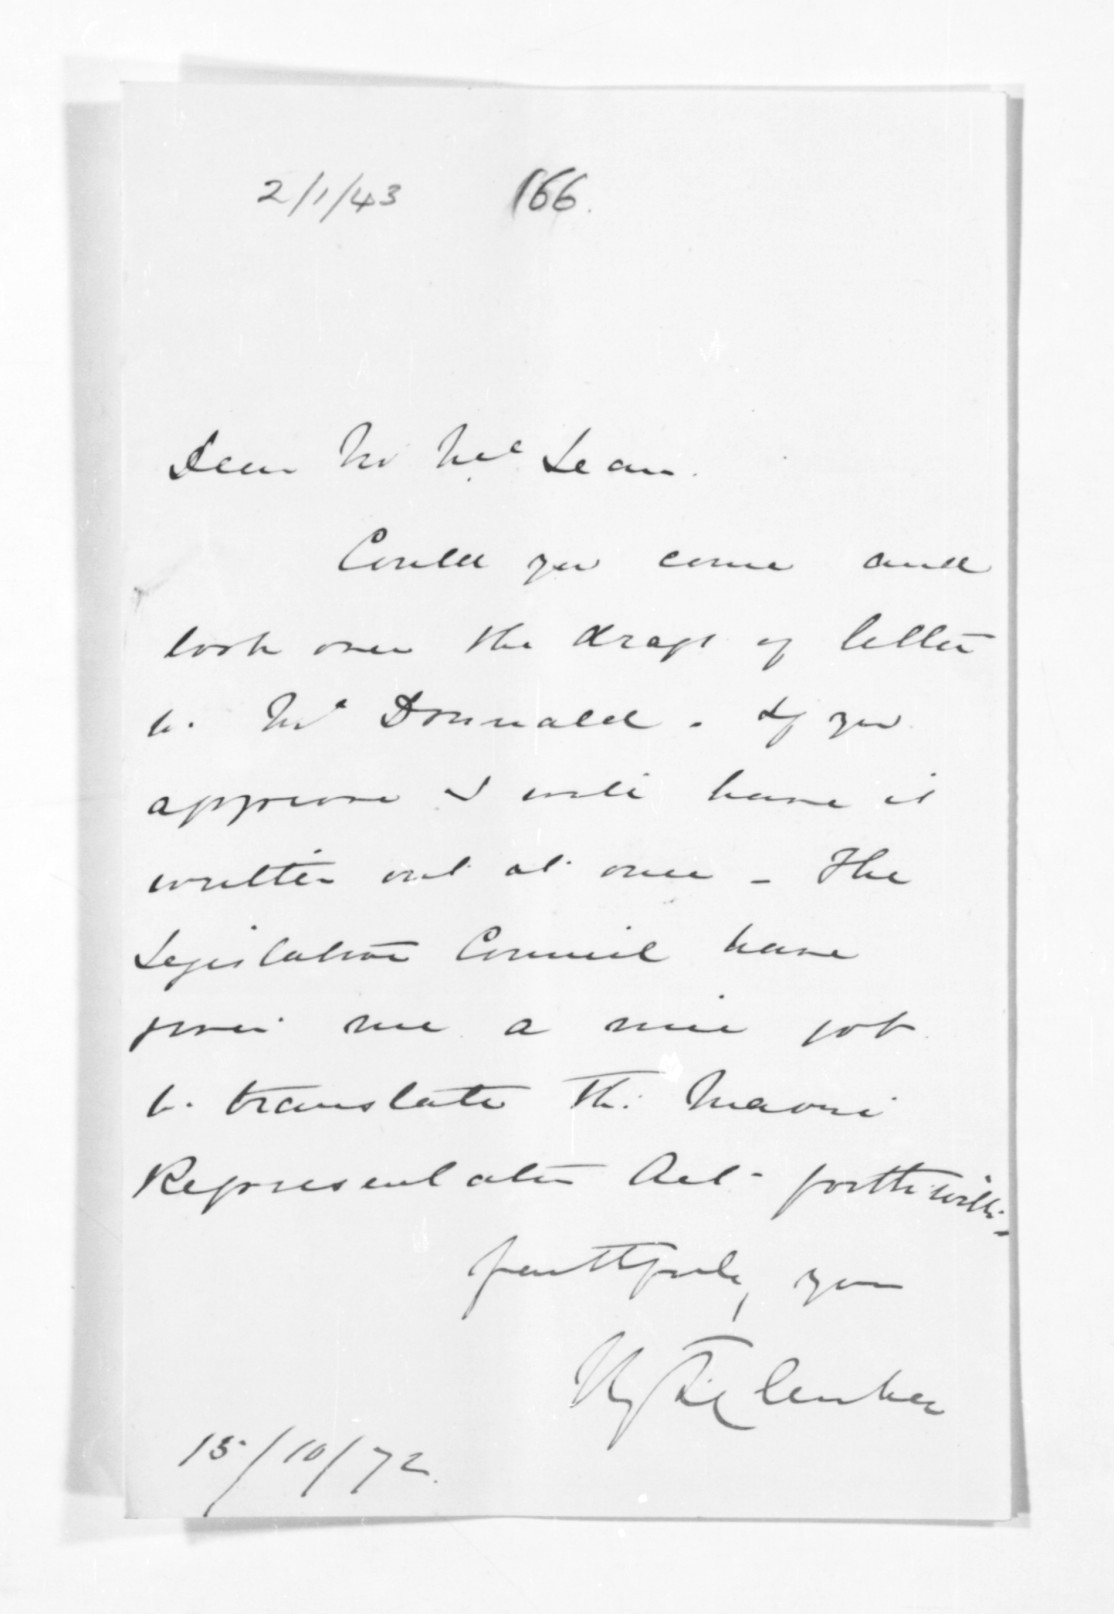 2/1/43 166.
Dear Mr McLean.
Could you come and
look over the draft of letter
to McDonnald. If you
approve I will have it
written out at once - The
Legislative Council have
given me a nice job
to translate the Maori
Representation Act - forthwith -
faithfully yours
Hy T. Clarke
15/10/72.